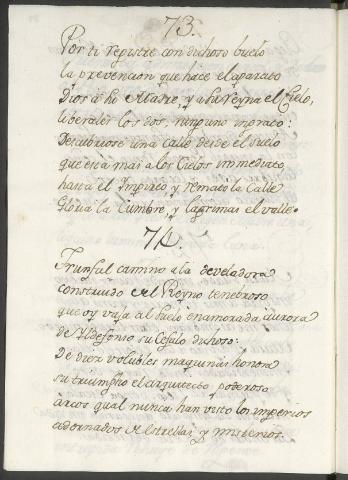 73.
Por ti registre con dichoso buelo
la prevencion que hace el aparato
Dios à su Madre, y à su Reyna el Cielo,
liberales los dos ninguno ingrato:
Descubriose una calle desde el suelo
que està mas a los Cielos immediato,
hasta el Impireo, y remató la Calle
Gloria la Cumbre, y lagrimas el valle.
74.
Triunfal camino a la develadora
construido del Reyno tenebroso
que oy vaja al suelo enamorada aurora
de Yldefonso su Cefalo dichoso:
De diez volubles maquinas honora
su triumpho el arquitecto poderoso
arcos qual nunca han visto los imperios
adornados de Estrellas, y misterios.